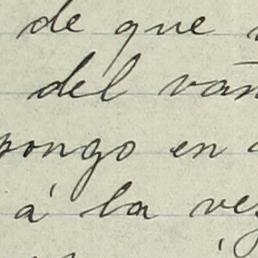 de que
del
pongo en
á la vez